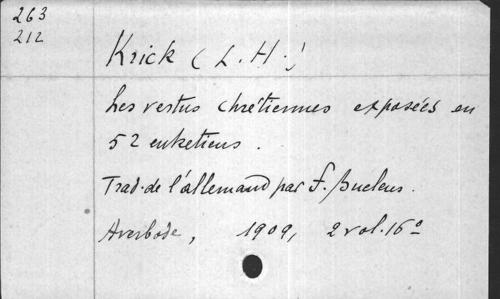 263
212
Krick (L.H.)
Les vertus chrétiennes exposées en
52 entretiens.
Trad. de l'allemand par F.
Averbode, 1909, 2 vol. 16°